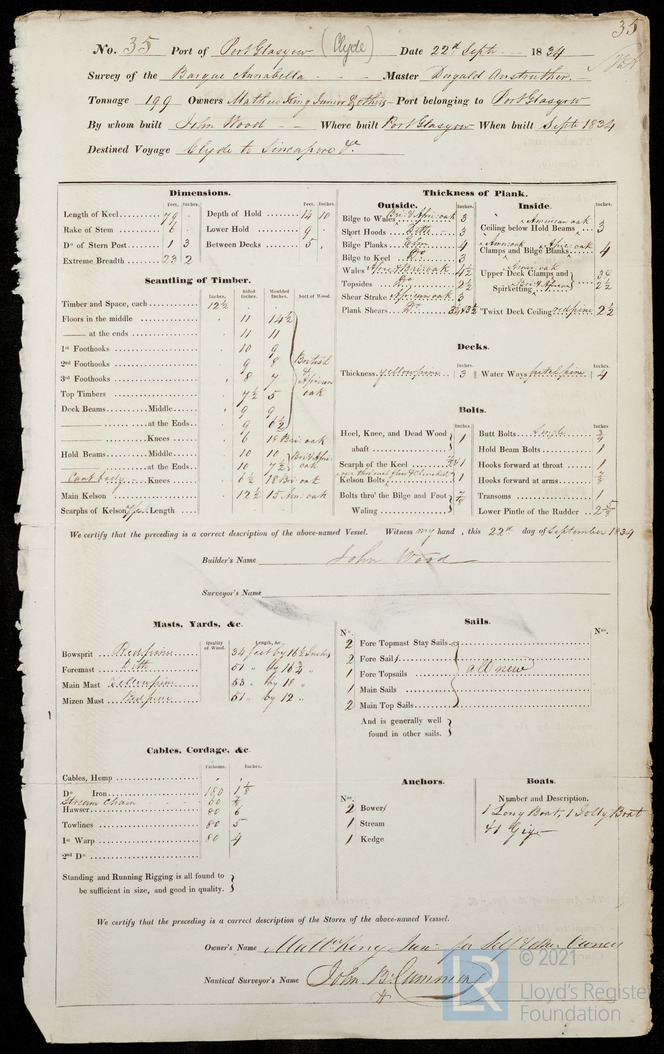 35
No. 35 Port of Port Glasgow (Clyde) Date 22d Septr 1834
Survey of the Barque Annabella Master Dugald Anstruther
Tonnage 199 Owners Mathew King Junior & others Port belonging to Port Glasgow
By whom built John Wood Where built Port Glasgow When built Septr 1834
Destined Voyage Clyde to Sincapore &c
Dimensions.
Feet. Inches. Feet. Inches.
Length of Keel 79 Depth of Hold 14 10
Rake of Stem 6 Lower Hold 9
Do of Stern Post 1 3 Between Decks 5
Extreme Breadth 23 2
Scantling of Timber.
Inches. Sided Inches. Moulded Inches. Sort of Wood.
Timber and Space, each 12½
Floors in the middle 11 14½
—— at the ends 11 11
1st Foothooks 10 9
2nd Foothooks 9 8 British
3rd Foothooks 8 7 & African
Top Timbers 7½ 5 oak
Deck Beams Middle 9 9
—— at the Ends 9 6½
—— Knees 6 18 Bri. oak
Hold Beams Middle 10 10 Bri & Afri
—— at the Ends 10 7½ oak
Knees 6½ 18 Bri oak
Main Kelson 12½ 15 Afri. oak
Scarphs of Kelson Length
Thickness of Plank.
Outside.
Inches
Bilge to Wales Bri & Afri. oak 3
Short Hoods Ditto 3
Bilge Planks Elm 4
Bilge to Keel Do 3
Wales Afri & Bri. oak 4½
Topsides Do 2½
Shear Strake African oak 3
Plank Shears Do
Inside.
Inches
American oak
Ceiling below Hold Beams 3
Clamps and Bilge Planks 4
Upper Deck Clamps and
Spirketting Bri & African 2½
'Twixt Deck Ceiling red pine 2½
Decks.
Thickness yellow pine 3 Water Ways pitch pine 4
Bolts.
Inches Inches
Heel, Knee, and Dead Wood
abaft 1
Scarph of the Keel
Kelson Bolts 1
Bolts thro' the Bilge and Foot
Waling
Butt Bolts Single ¾
Hold Beam Bolts 1
Hooks forward at throat 1
Hooks forward at arms ⅞
Transoms 1
Lower Pintle of the Rudder 2⅝
We certify that the preceding is a correct description of the above-named Vessel. Witness my hand, this 22d day of September 1834
Builder's Name John Wood
Surveyor's Name
Masts, Yards, &c.
Quality of Wood. Length, &c
Bowsprit Red pine 34 feet by 16½ Inches
Foremast Ditto 51 " by 16¾ "
Main Mast Yellow pine 53 " by 18 "
Mizen Mast Red pine 51 " by 12 "
Sails.
No. No.
2 Fore Topmast Stay Sails
2 Fore Sails
1 Fore Topsails all new
1 Main Sails
2 Main Top Sails
And is generally well
found in other sails.
Cables, Cordage, &c
Fathoms. Inches.
Cables, Hemp
Do Iron 180 1⅛
Stream Chain 60
Hawser 80 6
Towlines 80 5
1st Warp 80 4
2nd Do
Standing and Running Rigging is all found to
be sufficient in size, and good in quality.
Anchors.
No.
2 Bower
1 Stream
1 Kedge
Boats.
Number and Description.
1 Long Boat, 1 Jolly Boat
& 1 Gig
We certify that the preceding is a correct description of the Stores of the above-named Vessel.
Owner's Name Matt. King Junr for Self & other Owners
Nautical Surveyor's Name John B. Cumming
© 2021
LR Lloyd's Register
Foundation